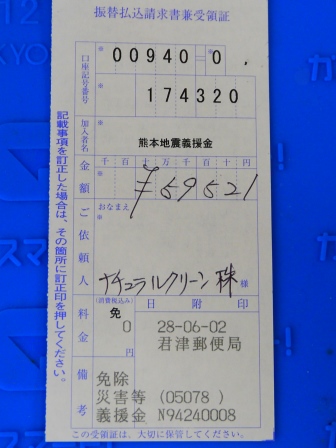 振替払込請求書兼受領証
口座記号番号
00940=0
174320
加入者名
熊本地震義援金
金額
千百十万千百十円
¥59521
ご依頼人
おなまえ
ナチュラルクリーン 株 様
料金
(消費税込み)
免
0
円
日附印
28-06-02
君津郵便局
備考
免除
災害等 (05078 )
義援金 N94240008
この受領証は、大切に保管してください。
記載事項を訂正した場合は、その箇所に訂正印を押してください。